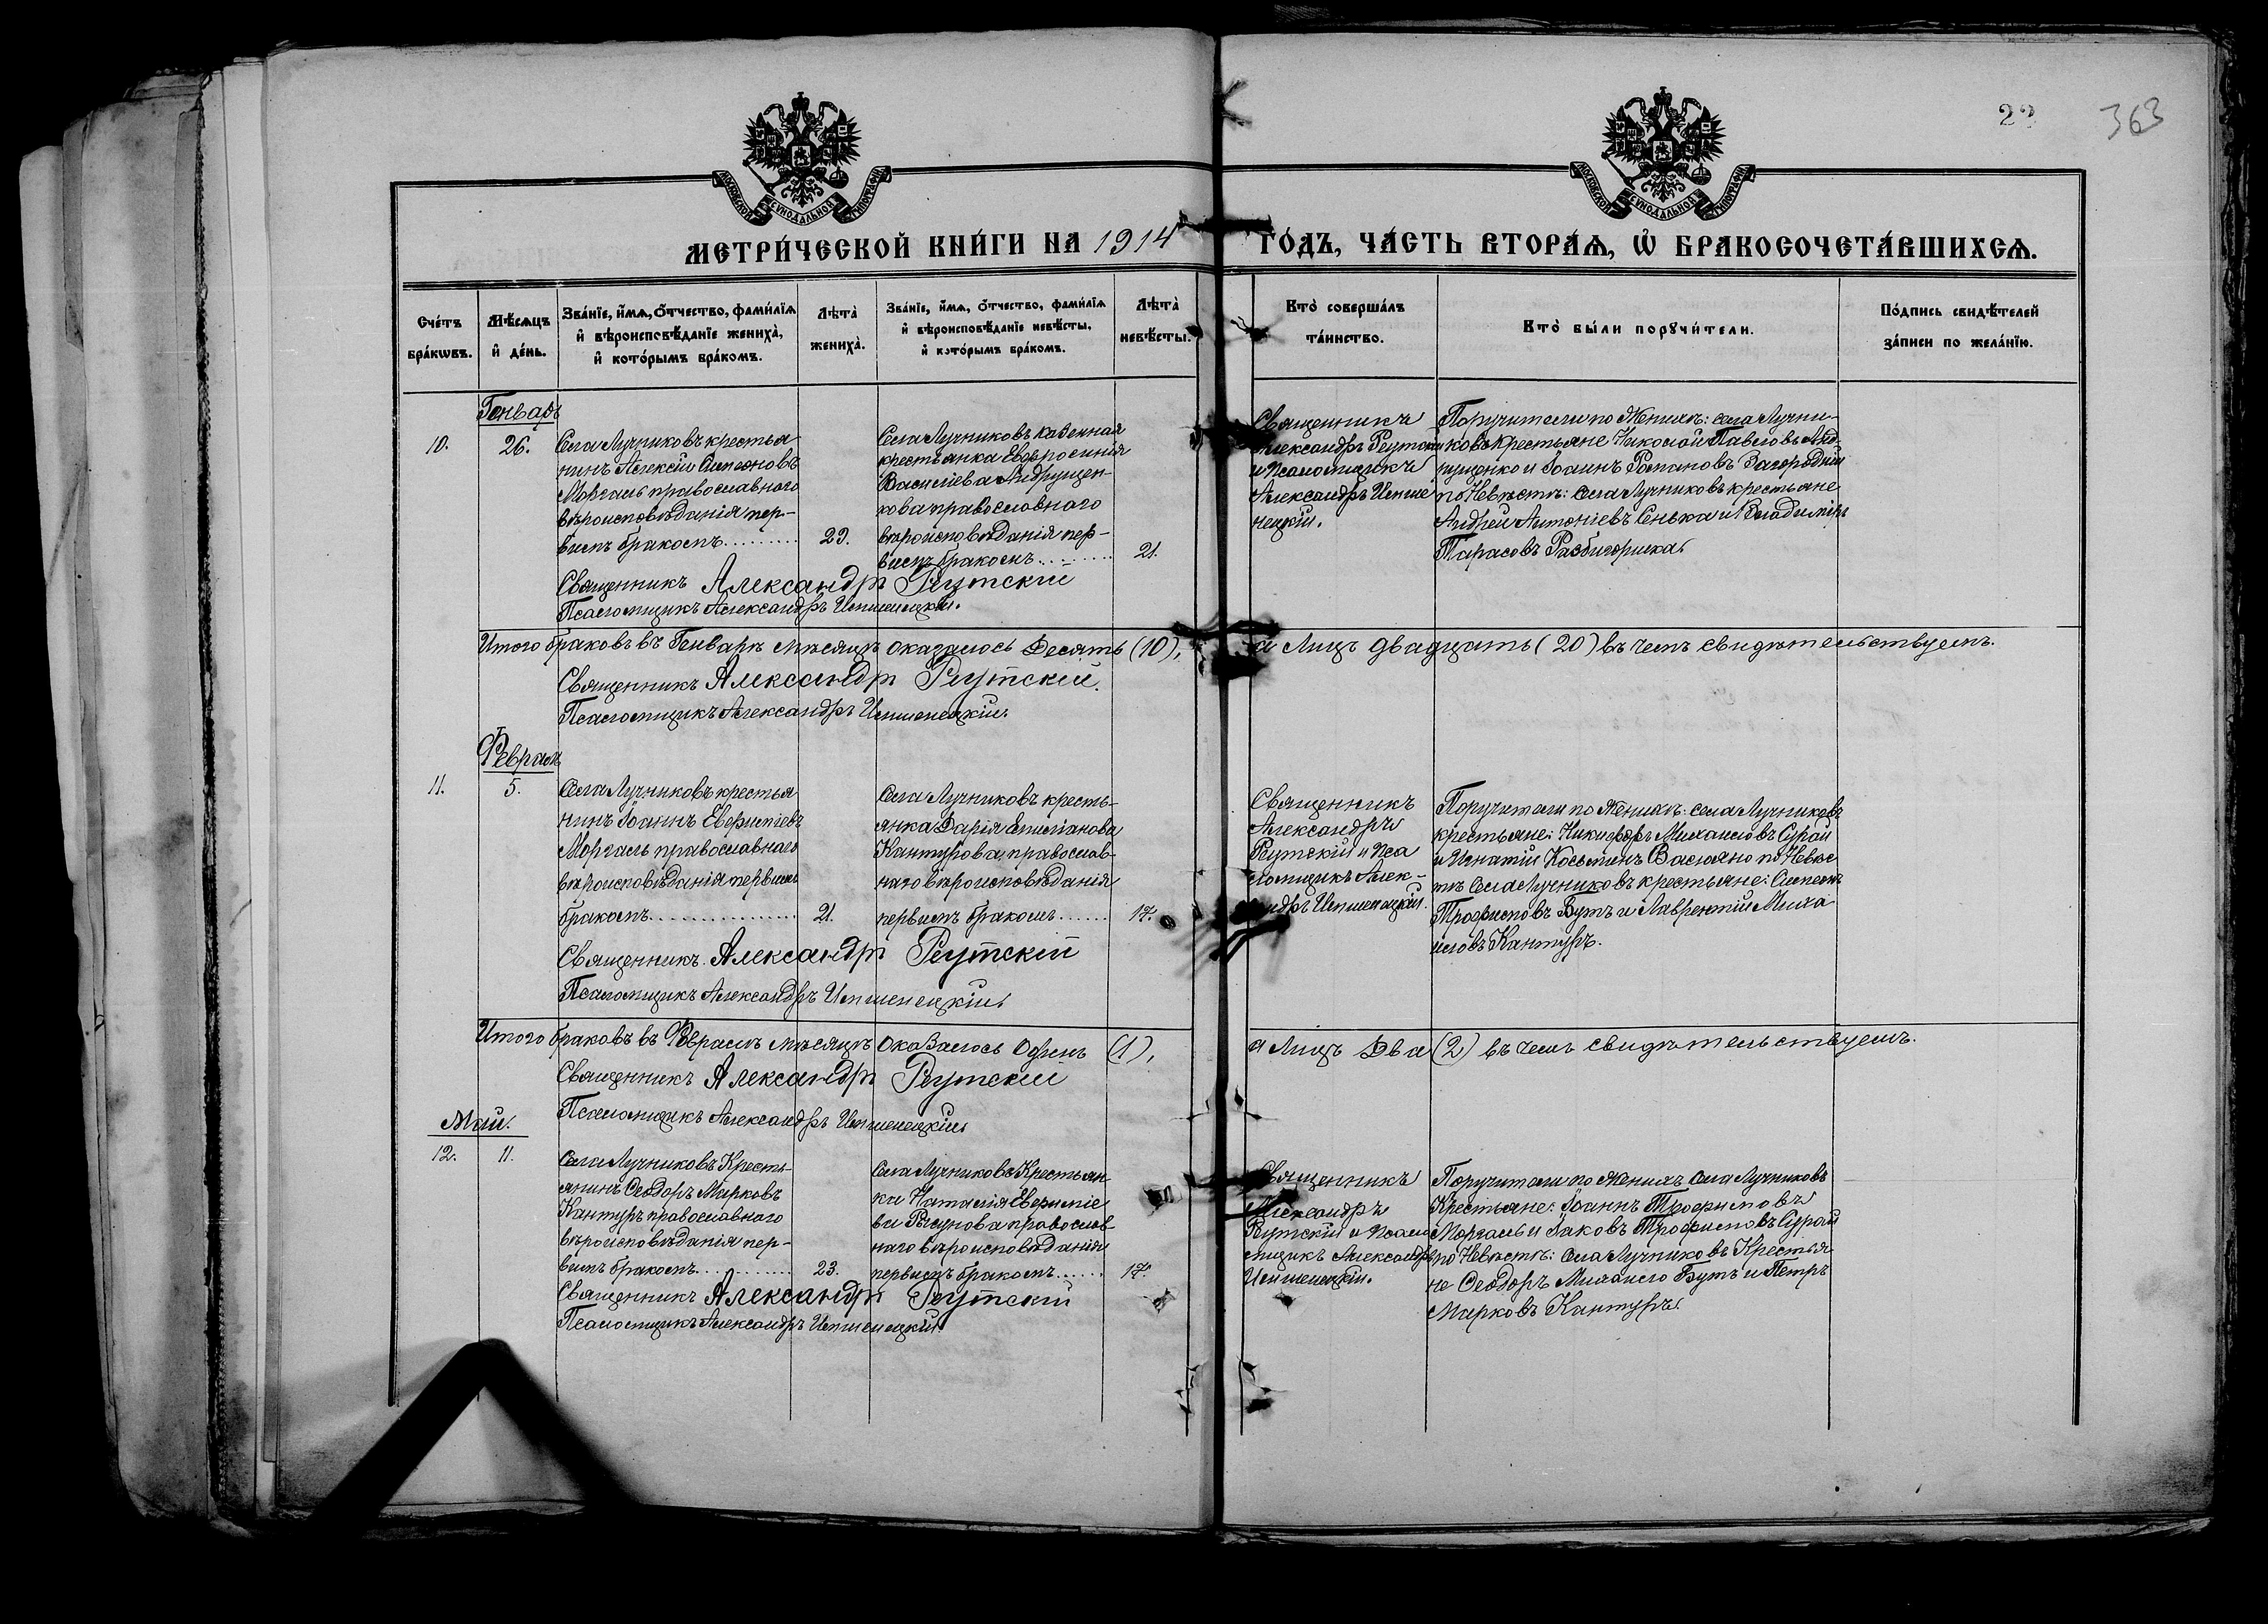 22
363
МОСКОВСКОЙ СѴНОДАЛЬНОЙ ТИПОГРАФІИ
МОСКОВСКОЙ СѴНОДАЛЬНОЙ ТИПОГРАФІИ
МЕТРИ́ЧЕСКОЙ КНИ́ГИ НА 1914
ГО́ДЪ, ЧА́СТЬ ВТОРА́Ѧ, Ѽ БРАКОСОЧЕТА́ВШИХСѦ.
Сче́тъ бра́кѡвъ.
Мѣ́сѧцъ и де́нь.
Зва́нїе, и́мѧ, о́тчество, фами́лїѧ и вѣроисповѣ́данїе жениха̀, и кото́рымъ бра́комъ.
Лѣта̀ жениха̀.
Зва́нїе, и́мѧ, о́тчество, фами́лїѧ и вѣроисповѣ́данїе невѣ́сты, и кото́рымъ бра́комъ.
Лѣта̀ невѣ́сты.
Кто̀ соверша́лъ та́инство.
Кто̀ бы́ли порꙋчи́тели.
По́дпись свидѣ́телей за́писи по жела́нїю.
Генварь
10.
26.
Села Лучниковъ крестья-
нинъ Алексій Симеоновъ
Моргаль православнаго
вѣроисповѣданія пер-
вымъ бракомъ
23.
Села Лучниковъ казенная
крестьянка Евфросинія
Василіева Андрущен-
кова православнаго
вѣроисповѣданія пер-
вымъ бракомъ
21.
Священникъ
Александръ Реутскій
и Псаломщикъ
Александръ
Поручители по Женихѣ: села Лучни-
ковъ крестьяне Николай Павловъ Анд-
рущенко и Іоаннъ Романовъ Загородній
по Невѣстѣ: села Лучниковъ крестьяне
Андрей Антоніевъ Сенька и Владиміръ
Тарасовъ
Священникъ Александръ Реутскій
Псаломщикъ Александръ
Итого браковъ въ Генварѣ мѣсяцѣ оказалось Десять (10),
а лицъ двадцать (20) въ чемъ свидѣтельствуемъ.
Священникъ Александръ Реутскій.
Псаломщикъ Александръ
Февраль
11.
5.
Села Лучниковъ крестья
нинъ Іоаннъ
Моргаль православнаго
вѣроисповѣданія первымъ
бракомъ
21.
Села Лучниковъ кресть-
янка Дарія Епифанова
Кантурова, православ-
наго вѣроисповѣданія
первымъ бракомъ
17.
Священникъ
Александръ
Реутскій и Пса
ломщикъ Алек-
сандръ
Поручители по Женихѣ: села Лучниковъ
крестьяне: Никифоръ Михаиловъ Сурай
и Игнатій Косьминъ по Невѣс
тѣ Села Лучниковъ крестьяне: Симеонъ
Трофимовъ Бутъ и Лаврентій Миха
иловъ Кантуръ.
Священникъ. Александръ Реутскій
Псаломщикъ Александръ
Итого браковъ въ Февралѣ мѣсяцѣ оказалось Одинъ (1),
а лицъ Два (2) въ чемъ свидѣтельствуемъ.
Священникъ Александръ Реутскій
Псаломщикъ Александръ
Май.
12.
11.
Села Лучниковъ Кресть-
янинъ Ѳеодоръ Марковъ
Кантуръ православнаго
вѣроисповѣданія пер-
вымъ бракомъ
23.
Села Лучниковъ Крестьян-
ка Наталія
православ
наго вѣроисповѣданія
первымъ бракомъ
17.
Священникъ
Александръ
Реутскій и Псало
мщикъ Александръ
Поручители по Женихѣ Села Лучниковъ
Крестьяне: Іоаннъ Трофимовъ
Моргаль и Іаковъ Трофимовъ Сурай
по Невѣстѣ: Села Лучниковъ Крестья
не Ѳеодоръ Михаило Бутъ и Петръ
Марковъ Кантуръ.
Священникъ Александръ Реутскій
Псаломщикъ Александръ